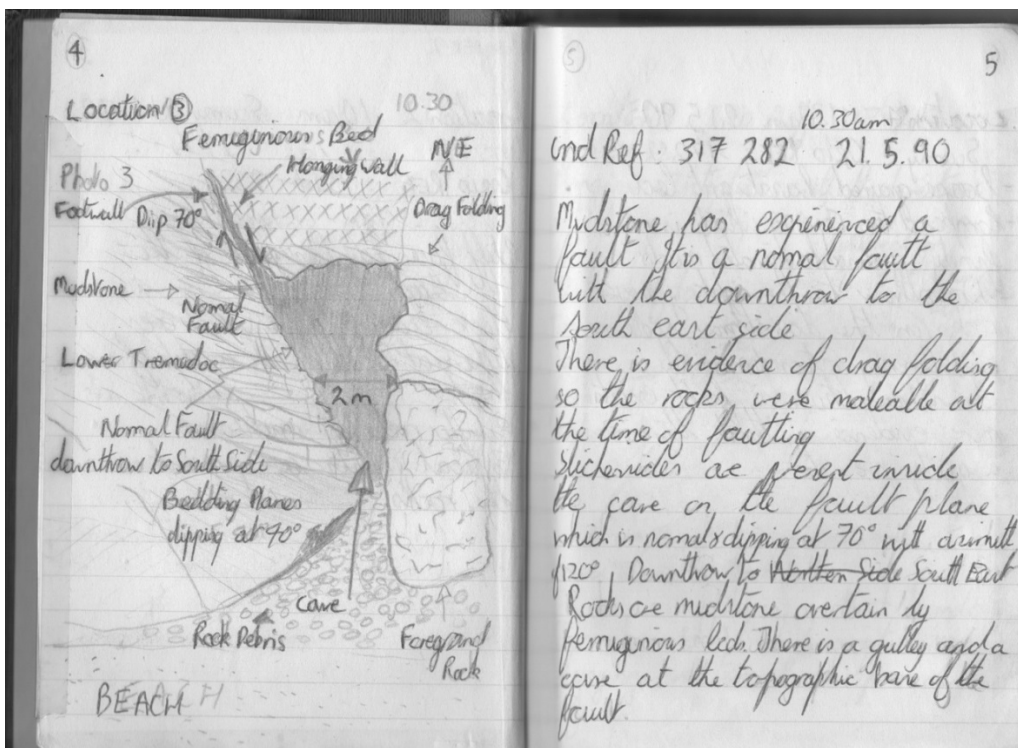 4
Location ③ 10.30
Ferruginous Bed
Hanging wall
N/E
Photo 3
Footwall
Dip 70°
Drag Folding
Mudstone
Normal
Fault
Lower Tremadoc
2m
Normal Fault
downthrow to South Side
Bedding Planes
dipping at 90°
Cave
Rock Debris
Foreground
Rock
BEACH
5
5
10.30am
Grid Ref: 317 282 21.5.90
Mudstone has experienced a
fault. It is a normal fault
with the downthrow to the
south east side
There is evidence of drag folding
so the rocks were maleable at
the time of faulting
Slickensides are present inside
the cave on the fault plane
which is normal & dipping at 70° with azimuth
of 120°. Downthrow to Northern Side South East
Rocks are mudstone overlain by
ferruginous beds. There is a gulley and a
cave at the topographic base of the
fault.